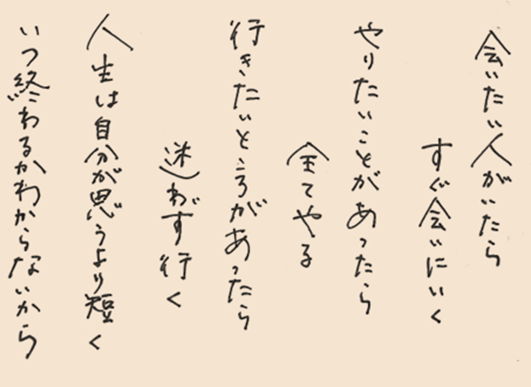 会いたい人がいたら
すぐ会いにいく
やりたいことがあったら
全てやる
行きたいところがあったら
迷わず行く
人生は自分が思うより短く
いつ終わるかわからないから